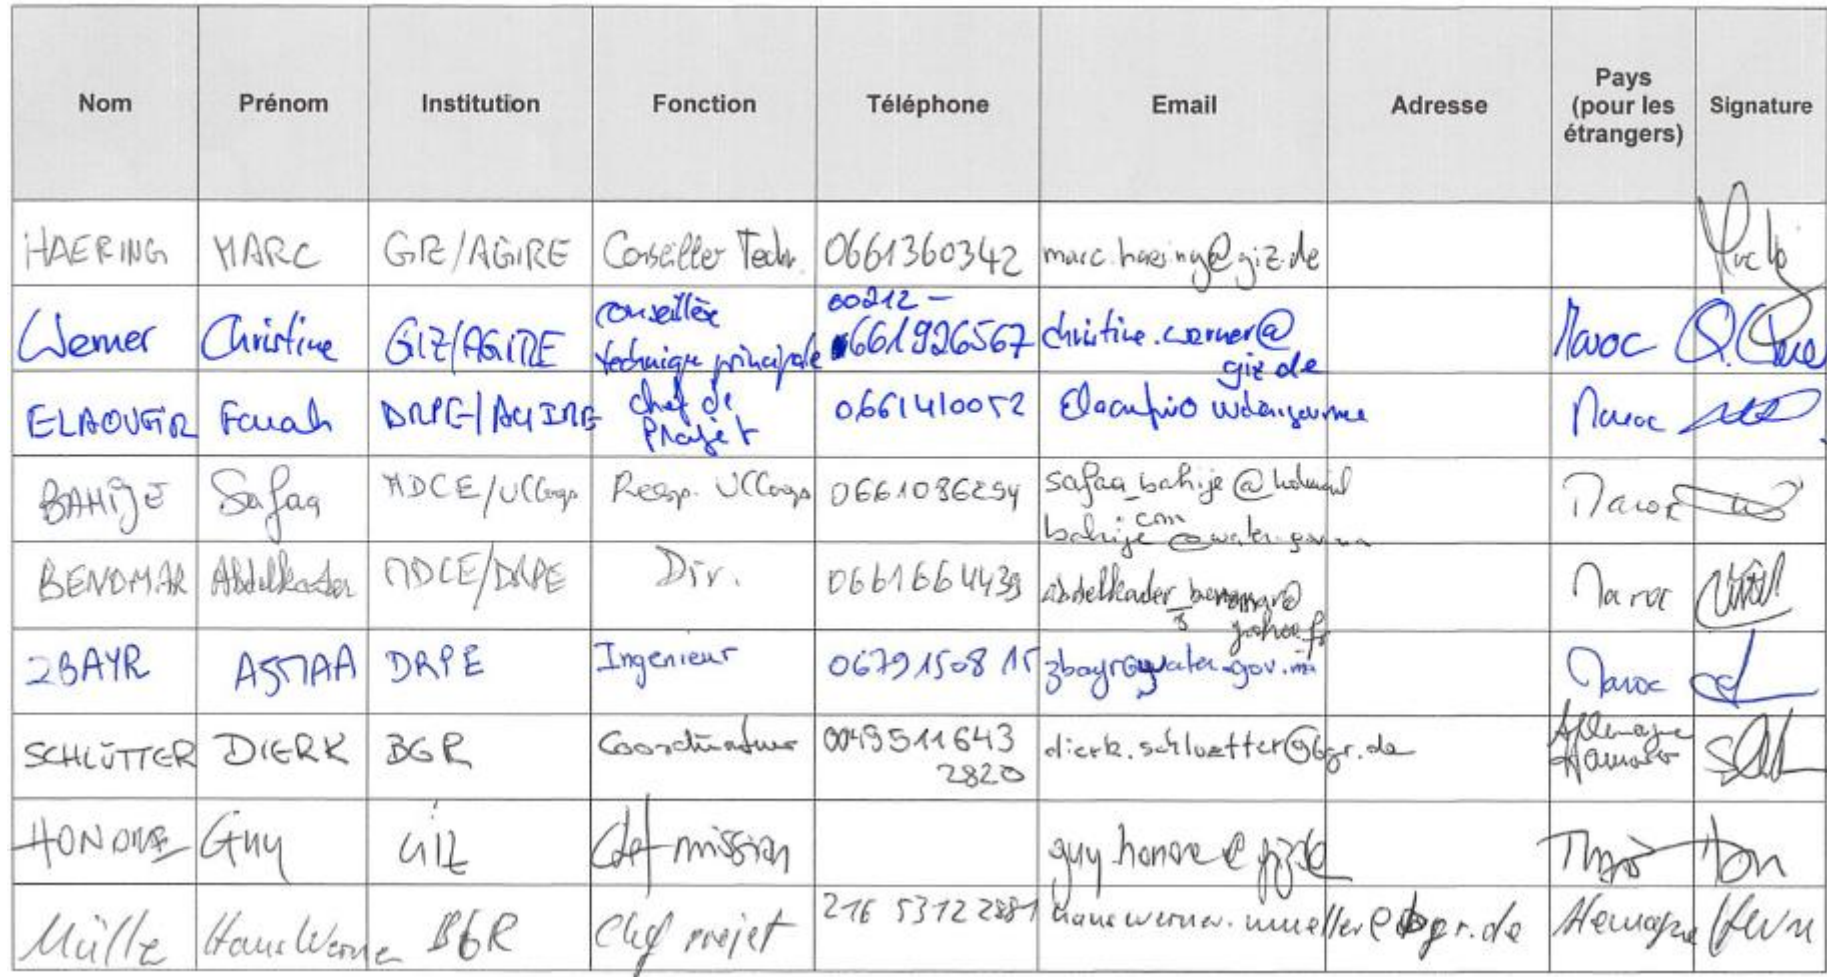 Nom Prénom Institution Fonction Téléphone Email Adresse Pays (pour les étrangers) Signature
HAERING MARC GIZ/AGIRE Conseiller Techn. 0661360342 marc.haering@giz.de
Werner Christine GIZ/AGIRE Conseillère technique principale 00212-661926567 christine.werner@giz.de Maroc
DRPE/AGIRE chef de Projet 0661410052 Maroc
BAHIJE Safaa MDCE/UCCoop Resp. UCCoop 0661086254 safaa_bahije@hotmail.com bahije@water.gov.ma Maroc
BENOMAR Abdelkader MDCE/DRPE Div. 0661664439 abdelkader_benomar@yahoo.fr Maroc
ZBAYR ASMAA DRPE Ingenieur 0679150815 zbayr@water.gov.ma Maroc
SCHLÜTTER DIERK BGR Coordinateur 00495116432820 dierk.schluetter@bgr.de Allemagne
HONORE Guy GIZ Chef mission guy.honore@giz.de
Müller Hans Werner BGR Chef projet 216 53122881 hanswerner.mueller@bgr.de Allemagne